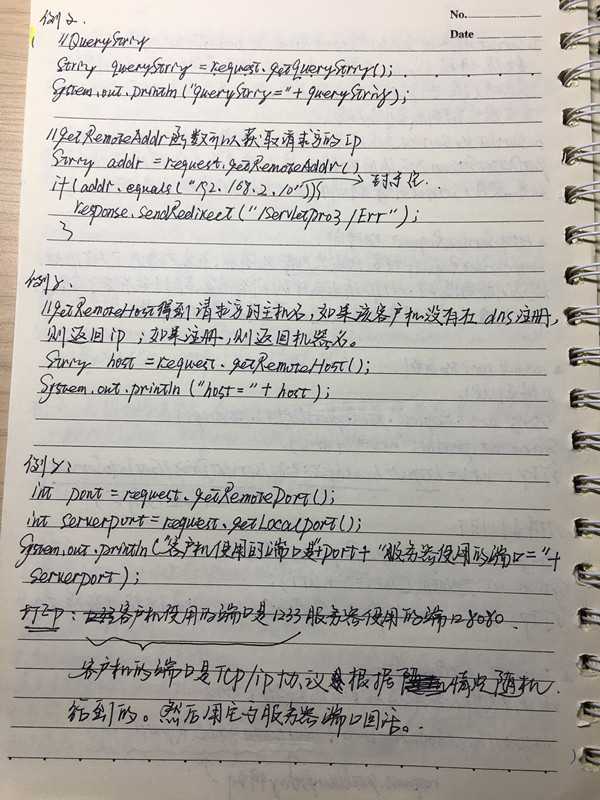 No.
Date
例2.
//QueryString
String queryString = request.getQueryString();
System.out.println("queryString="+ queryString);
//getRemoteAddr函数可以获取请求方的IP
String addr = request.getRemoteAddr()
if(addr.equals("192.168.2.10")){ → 封杀它.
response.sendRedirect("/Servletpro3/Err");
}
例:
//getRemoteHost得到请求方的主机名,如果该客户机没有在dns注册,
则返回ip;如果注册,则返回机器名。
String host = request.getRemoteHost();
System.out.println("host="+ host);
例:
int port = request.getRemotePort();
int serverport = request.getLocalport();
System.out.println("客户机使用的端口是"+port+"服务器使用的端口="+
serverport);
打印:客户机使用的端口是1233服务器使用的端口8080.
客户机的端口是TCP/ip协议根据情况随机
得到的。然后用它与服务器端口回话.